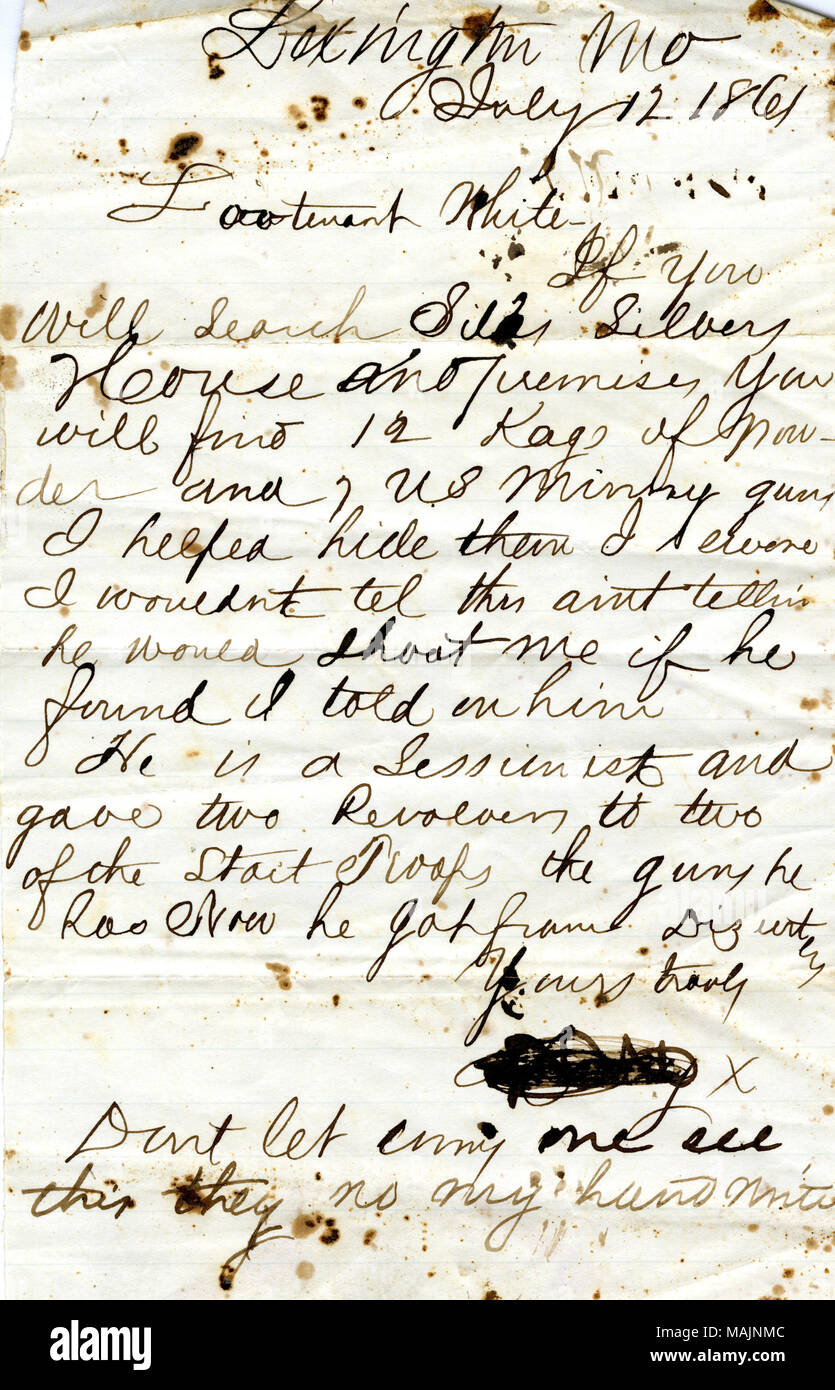 Lexington Mo
July 12 1861
Lootenant White
If you
will search Silas Silvers
House and premises you
will find 12 Kags of pow-
der and 7 US Minny guns
I helped hide them I swore
I wouldnt tel this aint tellin
he would shoot me if he
found I told on him
He is a Sessionist and
gave two Revolvers to two
of the Stait Troops the guns he
has Now he got from
Yours trooly
X
Dont let enny one see
this they no my hand write
alamy
Image ID: MAJNMC
www.alamy.com